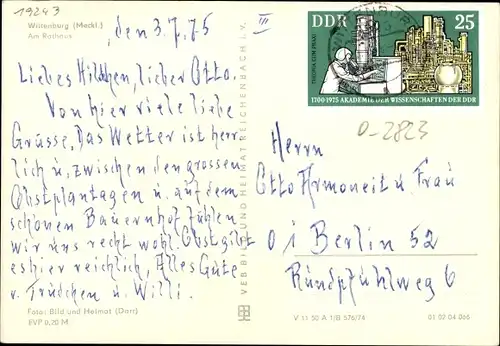 19243
Wittenburg (Meckl.)
Am Rathaus
den 3.7.75
III
Liebes Hildchen, lieber Otto.
Von hier viele liebe
Grüsse, Das Wetter ist herr
lich u, zwischen den grossen
Obstplantagen u. auf dem
schönen Bauernhof fühlen
wir uns recht wohl. Obst gibt
es hier reichlich, Alles Gute
v. Trudchen u. Willi.
Foto: Bild und Heimat (Darr)
EVP 0,20 M
VEB BILD UND HEIMAT REICHENBACH i. V.
DDR 25
1700-1975 AKADEMIE DER WISSENSCHAFTEN DER DDR
0-2823
Herrn
Otto Armoneit u Frau
01 Berlin 52
Rundpfuhlweg 6
V 11 50 A 1/B 576/74
01 02 04 066